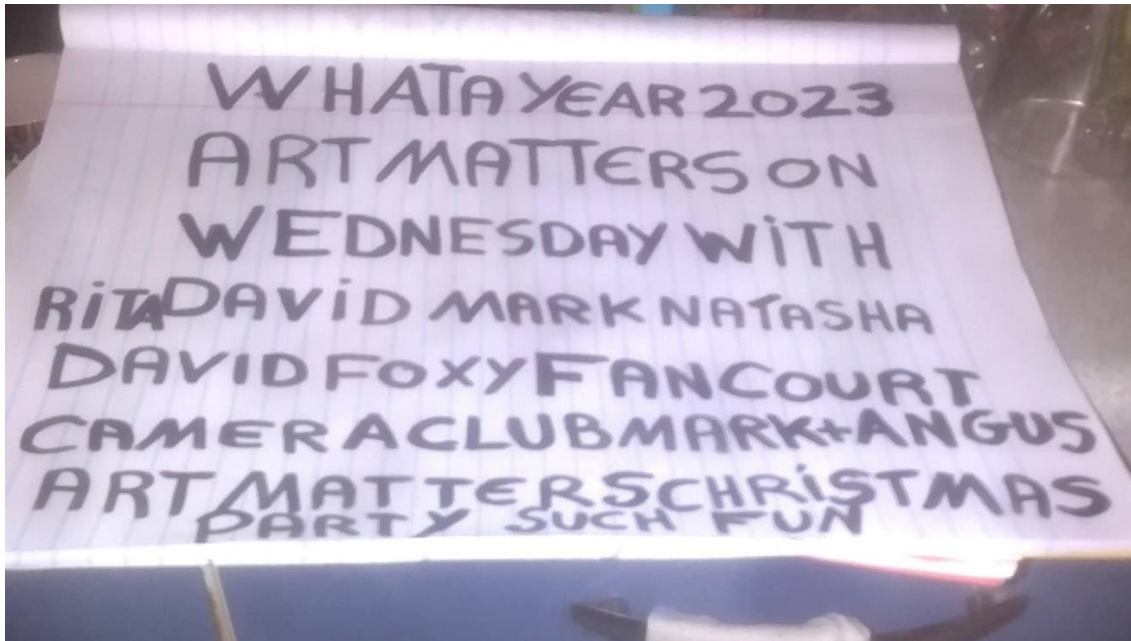 WHAT A YEAR 2023
ART MATTERS ON
WEDNESDAY WiTH
RiTA DAViD MARK NATASHA
DAVID FOXY FANCOURT
CAMERA CLUB MARK + ANGUS
ART MATTERS CHRiSTMAS
PARTY SUCH FUN